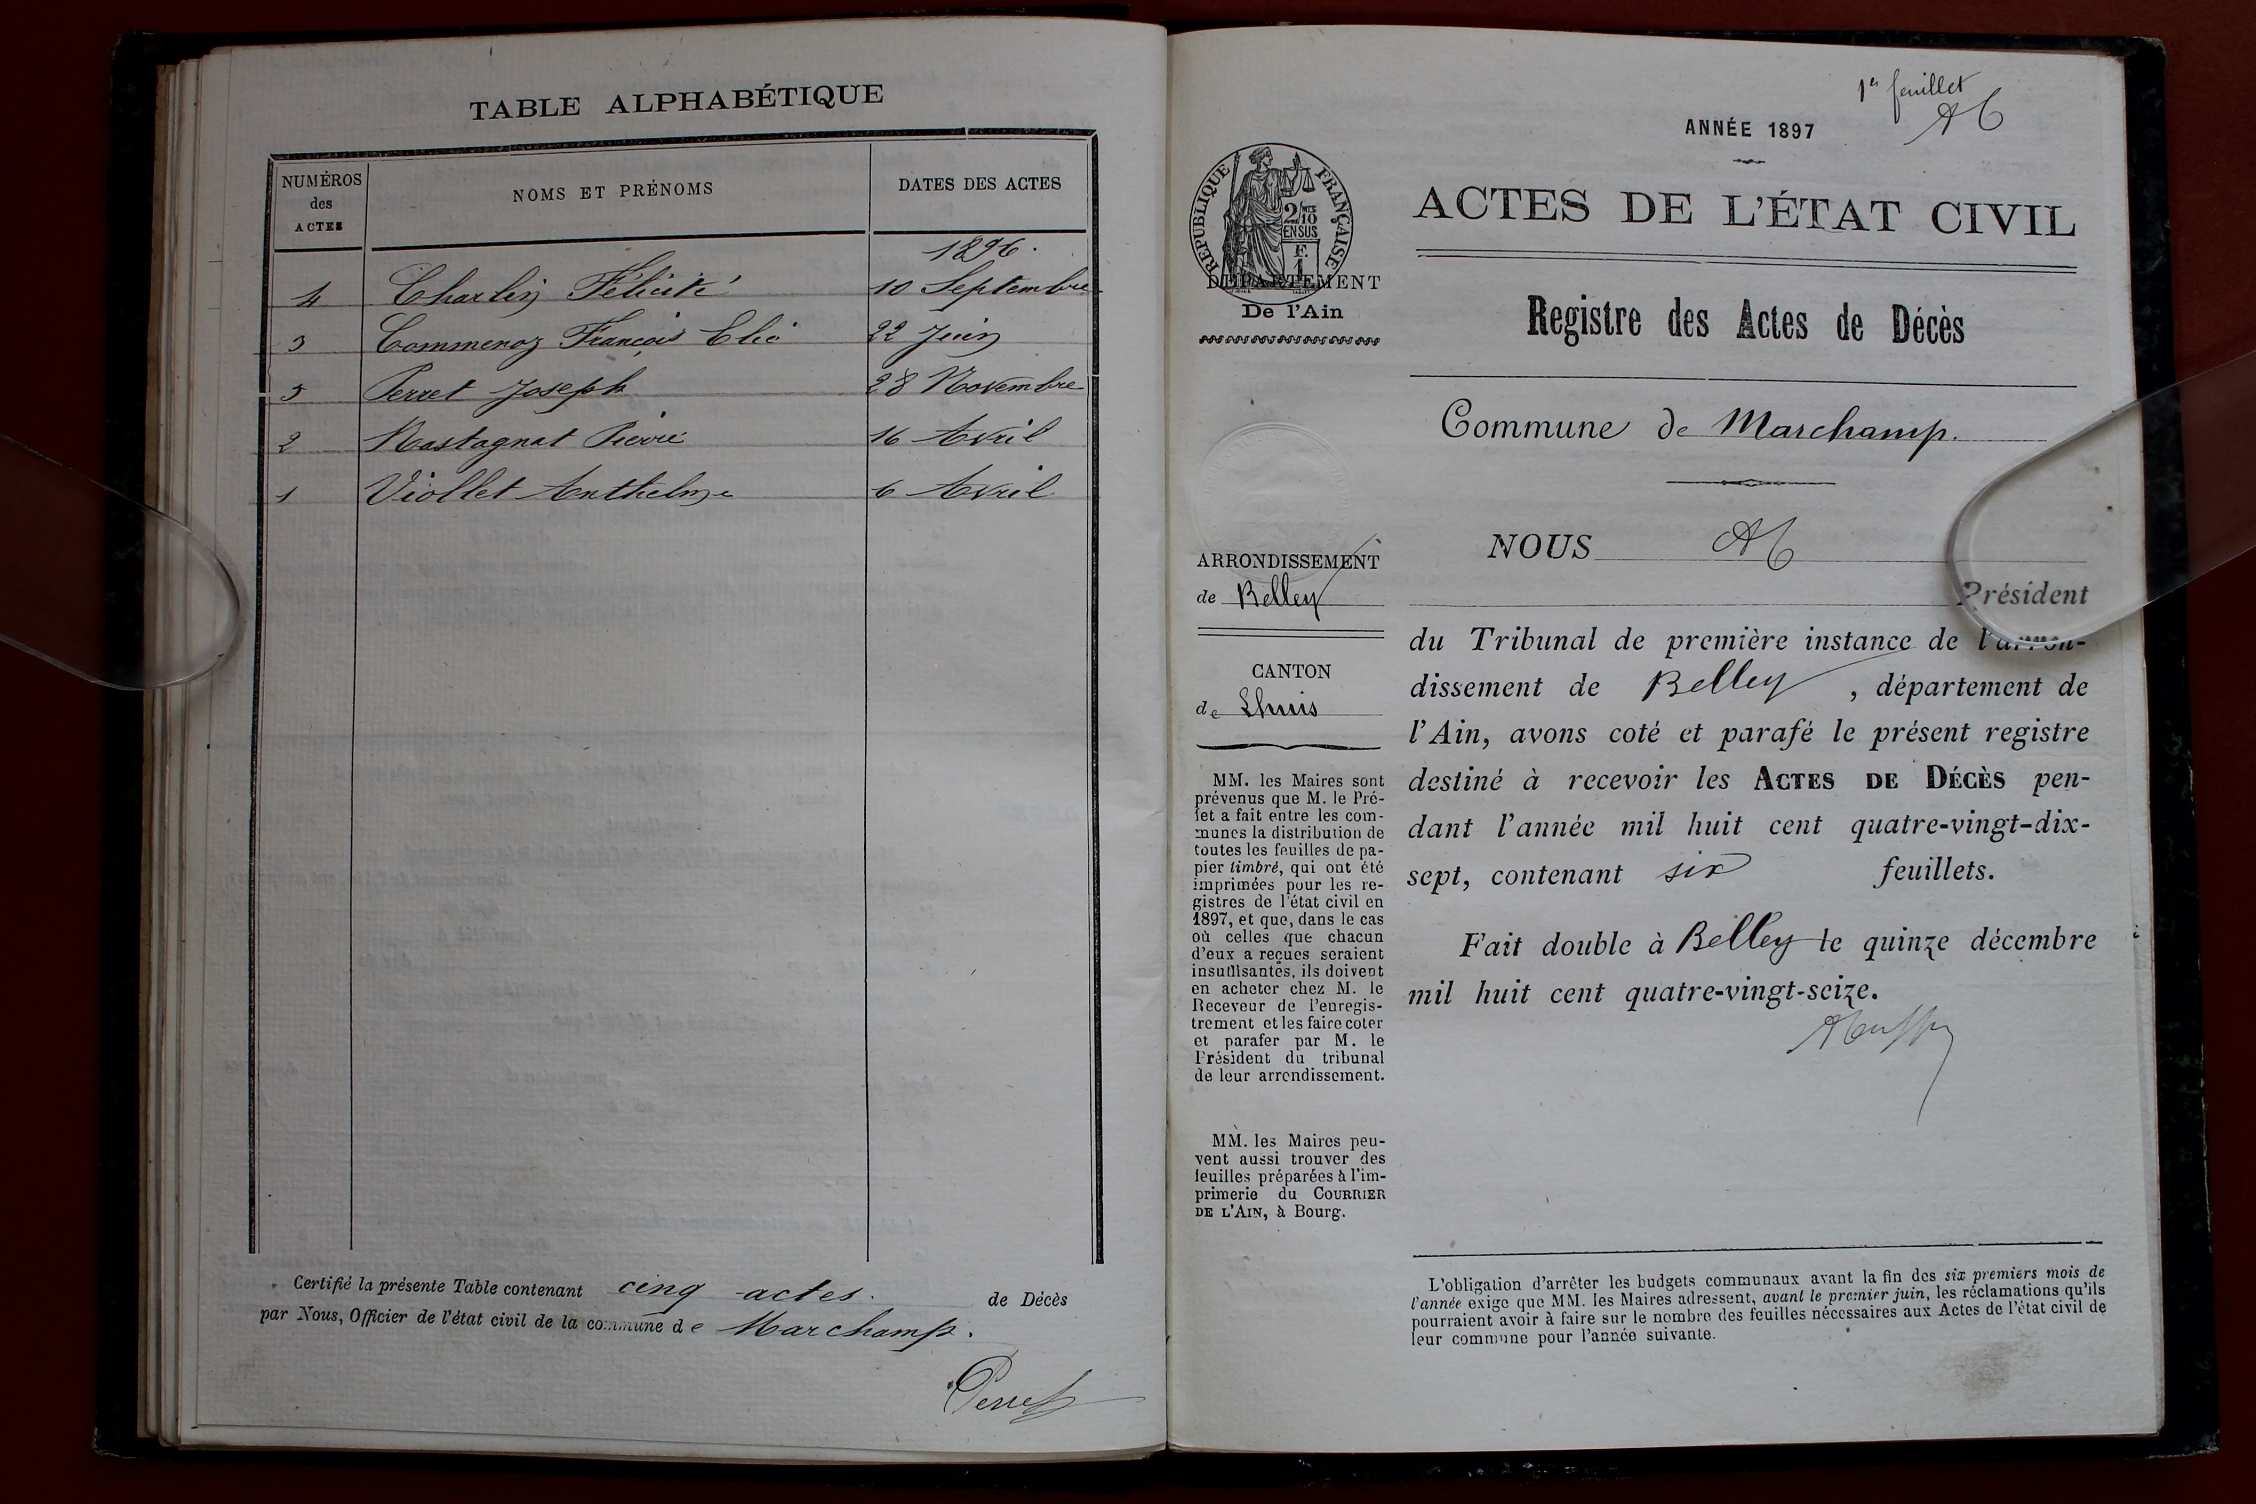 TABLE ALPHABÉTIQUE
NUMÉROS
des
ACTES
NOMS ET PRÉNOMS
DATES DES ACTES
1896.
4 Charlin Félicité 10 Septembre
3 Commenoz François Elie 22 Juin
5 Perret Joseph 28 Novembre
2 Rastagnat Pierre 16 Avril
1 Viollet Anthelme 6 Avril
Certifié la présente Table contenant cinq actes. de Décès
par Nous, Officier de l'état civil de la commune de Marchamp.
Perret
1er feuillet
ANNÉE 1897
RÉPUBLIQUE FRANÇAISE
2/10
EN SUS
F.
1
DÉPARTEMENT
De l'Ain
ARRONDISSEMENT
de Belley
CANTON
de Lhuis
MM. les Maires sont
prévenus que M. le Pré-
fet a fait entre les com-
munes la distribution de
toutes les feuilles de pa-
pier timbré, qui ont été
imprimées pour les re-
gistres de l'état civil en
1897, et que, dans le cas
où celles que chacun
d'eux a reçues seraient
insuffisantes, ils doivent
en acheter chez M. le
Receveur de l'enregis-
trement et les faire coter
et parafer par M. le
Président du tribunal
de leur arrondissement.
MM. les Maires peu-
vent aussi trouver des
feuilles préparées à l'im-
primerie du COURRIER
DE L'AIN, à Bourg.
ACTES DE L'ÉTAT CIVIL
Registre des Actes de Décès
Commune de Marchamp.
NOUS
Président
du Tribunal de première instance de l'arron-
dissement de Belley, département de
l'Ain, avons coté et parafé le présent registre
destiné à recevoir les ACTES DE DÉCÈS pen-
dant l'année mil huit cent quatre-vingt-dix-
sept, contenant six feuillets.
Fait double à Belley le quinze décembre
mil huit cent quatre-vingt-seize.
L'obligation d'arrêter les budgets communaux avant la fin des six premiers mois de
l'année exige que MM. les Maires adressent, avant le premier juin, les réclamations qu'ils
pourraient avoir à faire sur le nombre des feuilles nécessaires aux Actes de l'état civil de
leur commune pour l'année suivante.